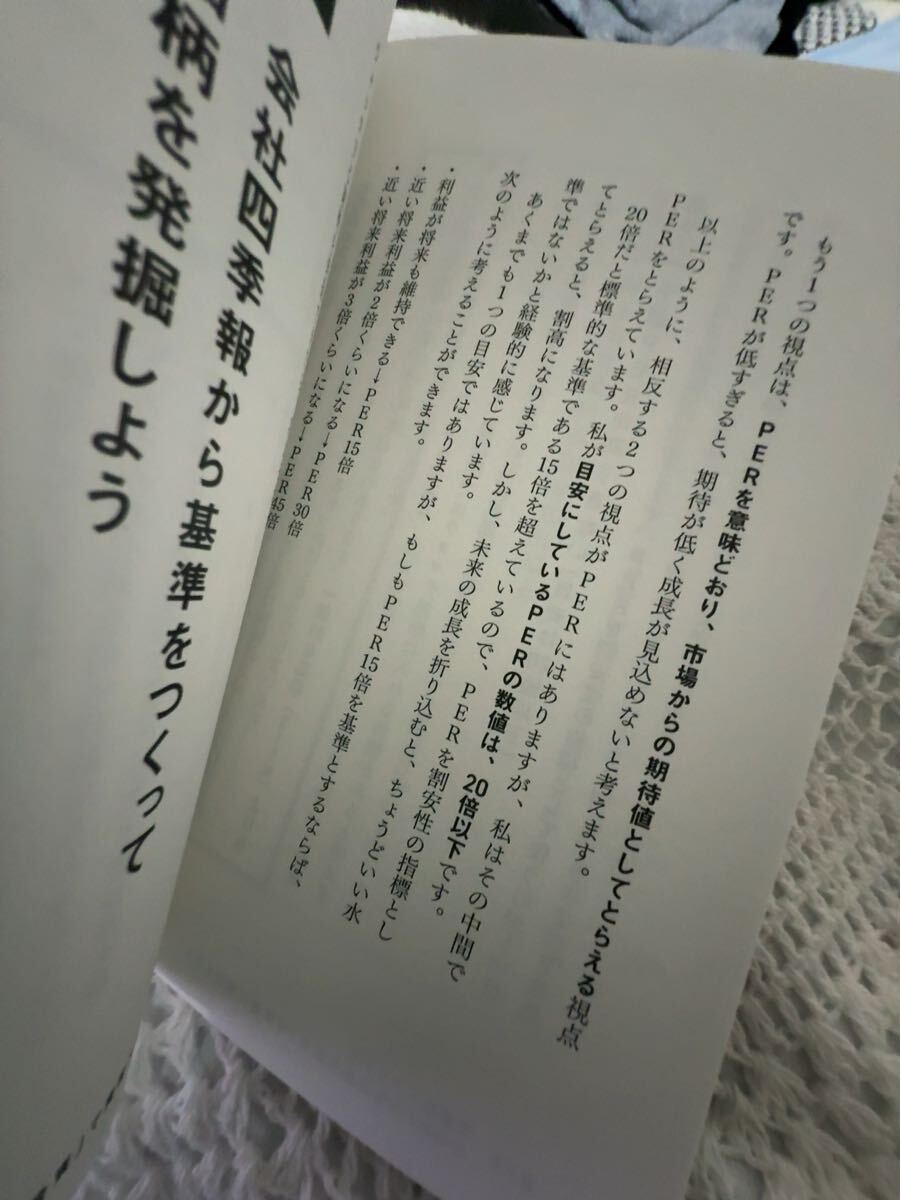 もう1つの視点は、PERを意味どおり、市場からの期待値としてとらえる視点
です。PERが低すぎると、期待が低く成長が見込めないと考えます。
以上のように、相反する2つの視点がPERにはありますが、私はその中間で
PERをとらえています。私が目安にしているPERの数値は、20倍以下です。
20倍だと標準的な基準である15倍を超えているので、PERを割安性の指標とし
てとらえると、割高になります。しかし、未来の成長を折り込むと、ちょうどいい水
準ではないかと経験的に感じています。
あくまでも1つの目安ではありますが、もしもPER15倍を基準とするならば、
次のように考えることができます。
・利益が将来も維持できる→PER15倍
・近い将来利益が2倍くらいになる→PER30倍
・近い将来利益が3倍くらいになる→PER45倍
会社四季報から基準をつくって
柄を発掘しよう